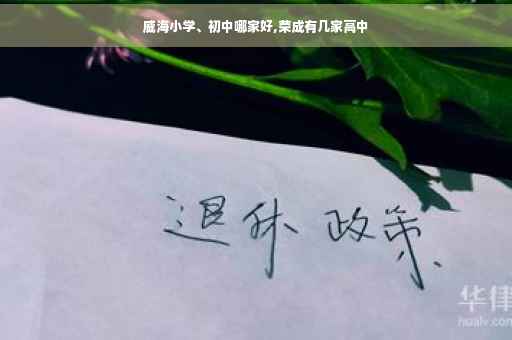 威海小学、初中哪家好,荣成有几家高中
退休 政策
华律
hualv.com